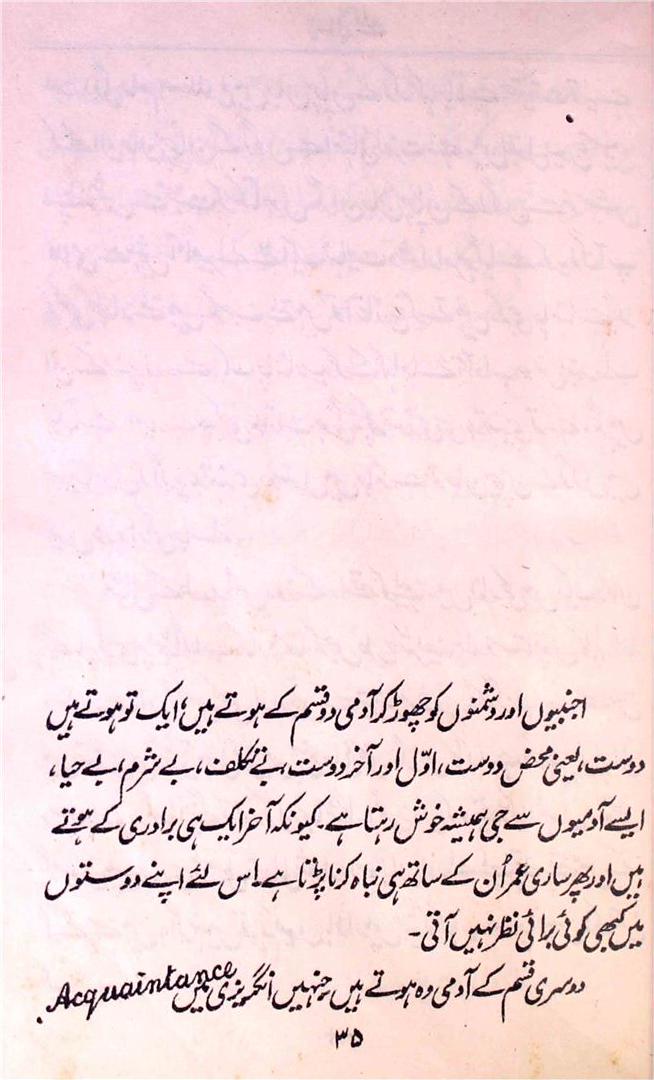 اجنبیوں اور دشمنوں کو چھوڑ کر آدمی دو قسم کے ہوتے ہیں؛ ایک تو ہوتے ہیں
دوست، یعنی محض دوست، اوّل اور آخر دوست، بے تکلف، بے شرم، بے حیا،
ایسے آدمیوں سے جی ہمیشہ خوش رہتا ہے۔ کیونکہ آخر ایک ہی برادری کے ہوتے
ہیں اور پھر ساری عمر اُن کے ساتھ ہی نباہ کرنا پڑتا ہے۔ اس لئے اپنے دوستوں
میں کبھی کوئی برائی نظر نہیں آتی۔
دوسری قسم کے آدمی وہ ہوتے ہیں جنہیں انگریزی میں Acquaintance
۳۵